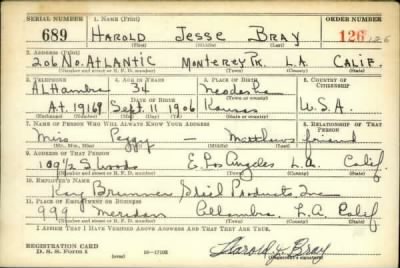 SERIAL NUMBER 1. NAME (Print) ORDER NUMBER
689 HAROLD JESSE BRAY 126 126
(First) (Middle) (Last)
2. ADDRESS (Print)
206 No. ATLANTIC MONTEREY PK. L.A. CALIF.
(Number and street or R. F. D. number) (Town) (County) (State)
3. TELEPHONE 4. AGE IN YEARS 5. PLACE OF BIRTH 6. COUNTRY OF CITIZENSHIP
ALHambra 34 Neodesha
DATE OF BIRTH (Town or county)
AT. 19169 Sept. 11 1906 Kansas U.S.A.
(Exchange) (Number) (Mo.) (Day) (Yr.) (State or country)
7. NAME OF PERSON WHO WILL ALWAYS KNOW YOUR ADDRESS 8. RELATIONSHIP OF THAT PERSON
Miss Peggy Matthews friend
(Mr., Mrs., Miss) (First) (Middle) (Last)
9. ADDRESS OF THAT PERSON
109½ S. Woods E. Los Angeles L.A. Calif.
(Number and street or R. F. D. number) (Town) (County) (State)
10. EMPLOYER'S NAME
Kay Brunner Steel Products, Inc
11. PLACE OF EMPLOYMENT OR BUSINESS
999 Meridian Alhambra, L.A. Calif
(Number and street or R. F. D. number) (Town) (County) (State)
I AFFIRM THAT I HAVE VERIFIED ABOVE ANSWERS AND THAT THEY ARE TRUE.
REGISTRATION CARD
D. S. S. Form 1 (over) Harold J. Bray
(Registrant's signature)